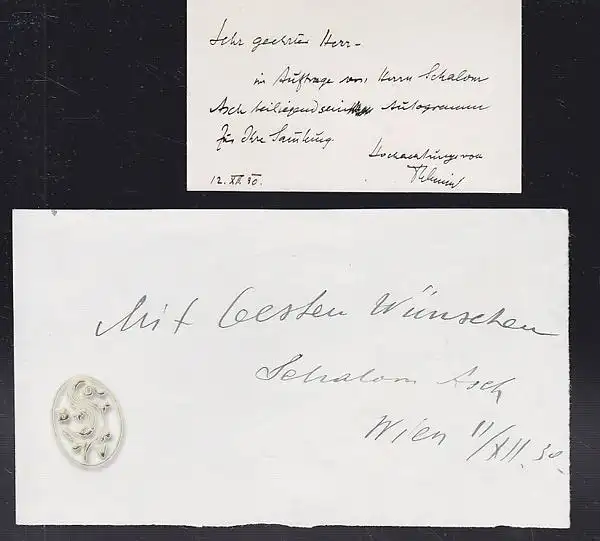 Sehr geehrter Herr –
im Auftrage von Herrn Schalom
Asch beiliegend sein Autogramm
für Ihre Samlung.
Hochachtungsvoll
12. XII. 30.
Mit besten Wünschen
Schalom Asch
Wien 11/XII. 30.